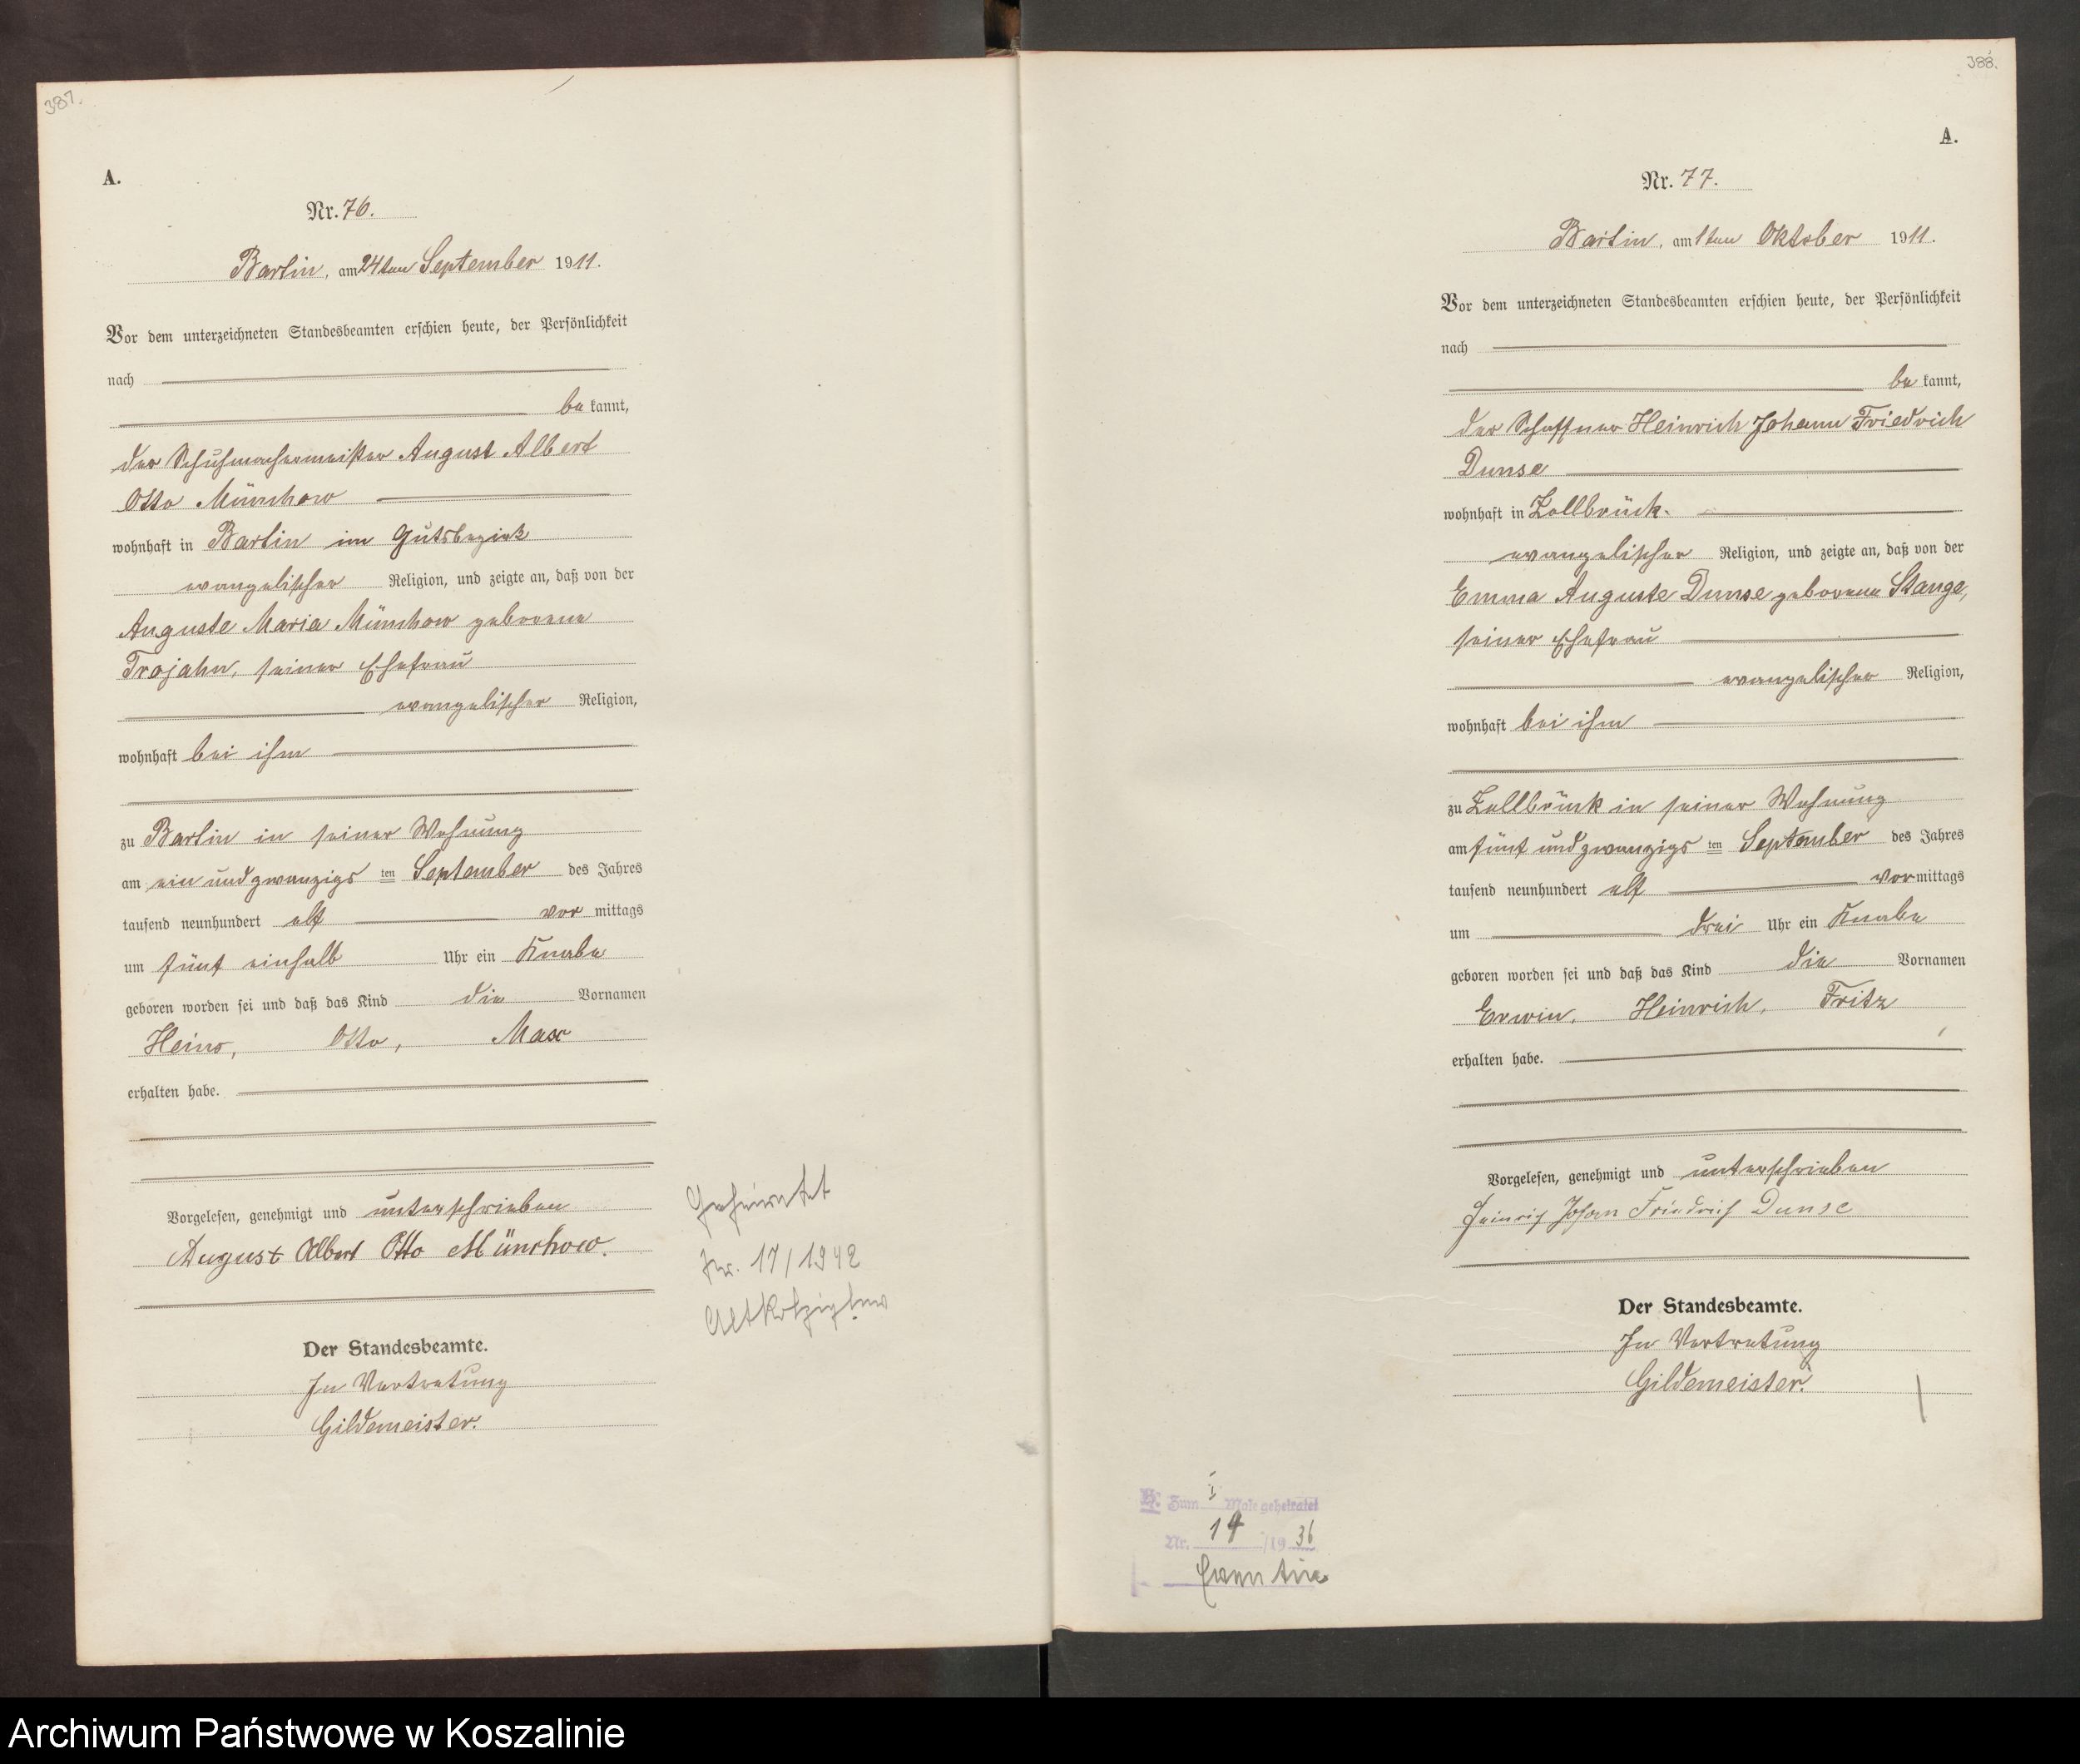 387.
A.
Nr. 76.
Bartin, am 24ten September 1911.
Vor dem unterzeichneten Standesbeamten erschien heute, der Persönlichkeit
nach
be kannt,
der Schuhmachermeister August Albert
Otto Münchow
wohnhaft in Bartin im Gutsbezirk
evangelischer Religion, und zeigte an, daß von der
Auguste Maria Münchow geborene
Trojahn, seiner Ehefrau
evangelischer Religion,
wohnhaft bei ihm
zu Bartin in seiner Wohnung
am ein und zwanzigs ten September des Jahres
tausend neunhundert elf vor mittags
um fünf einhalb Uhr ein Knabe
geboren worden sei und daß das Kind die Vornamen
Heinz, Otto, Max
erhalten habe.
Vorgelesen, genehmigt und unterschrieben
August Albert Otto Münchow.
Der Standesbeamte.
In Vertretung
Gildemeister.
Geheiratet
Nr. 17/1942
Altkolziglow
388.
A.
Nr. 77.
Bartin, am 1ten Oktober 1911.
Vor dem unterzeichneten Standesbeamten erschien heute, der Persönlichkeit
nach
be kannt,
der Schaffner Heinrich Johann Friedrich
Dunse
wohnhaft in Zollbrück.
evangelischer Religion, und zeigte an, daß von der
Emma Auguste Dunse geborene Stange,
seiner Ehefrau
evangelischer Religion,
wohnhaft bei ihm
zu Zollbrück in seiner Wohnung
am fünf und zwanzigs ten September des Jahres
tausend neunhundert elf vor mittags
um drei Uhr ein Knabe
geboren worden sei und daß das Kind die Vornamen
Erwin, Heinrich, Fritz
erhalten habe.
Vorgelesen, genehmigt und unterschrieben
Heinrich Johan Friedrich Dunse
Der Standesbeamte.
In Vertretung
Gildemeister.
H. Zum I Male geheiratet
Nr. 19 /19 36
Archiwum Państwowe w Koszalinie